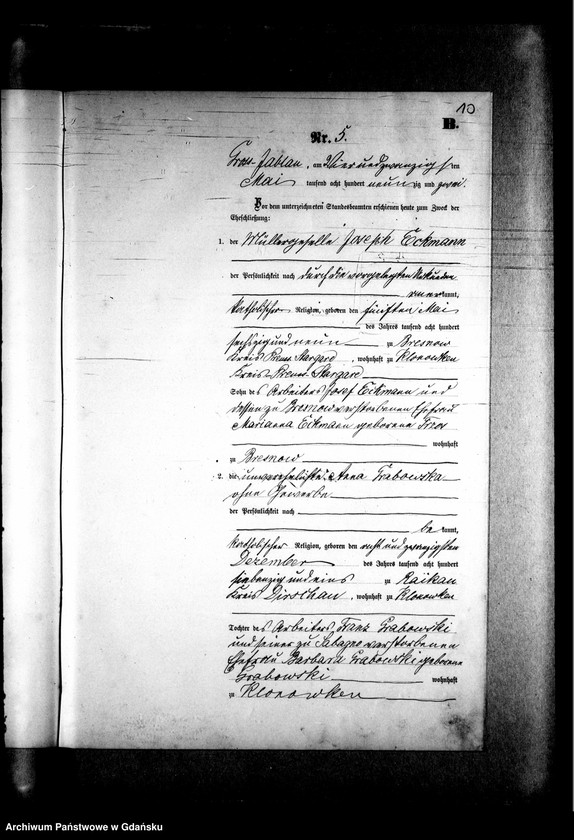 10
B.
Nr. 5.
Gross-Jablau, am Vier und zwanzigsten
Mai tausend acht hundert neunzig und zwei.
Vor dem unterzeichneten Standesbeamten erschienen heute zum Zweck der
Eheschließung:
1. der Müllergeselle Joseph Eckmann
der Persönlichkeit nach durch die vorgelegten Urkunden
anerkannt,
katholischer Religion, geboren den fünften Mai
des Jahres tausend acht hundert
sechszig und neun zu Bresnow
Kreis Preuss. Stargard, wohnhaft zu Klonowken
Kreis Preuss. Stargard
Sohn des Arbeiters Josef Eckmann und
dessen zu Bresnow verstorbenen Ehefrau
Marianna Eckmann geborene
wohnhaft
zu Bresnow
2. die unverehelichte Anna Grabowska
ohne Gewerbe
der Persönlichkeit nach
bekannt,
katholischer Religion, geboren den acht und zwanzigsten
Dezember des Jahres tausend acht hundert
siebenzig und eins zu Raikau
Kreis Dirschau, wohnhaft zu Klonowken
Tochter des Arbeiters Franz Grabowski
und seiner zu verstorbenen
Ehefrau Barbara Grabowski geborene
Grabowski wohnhaft
zu Klonowken
Archiwum Państwowe w Gdańsku